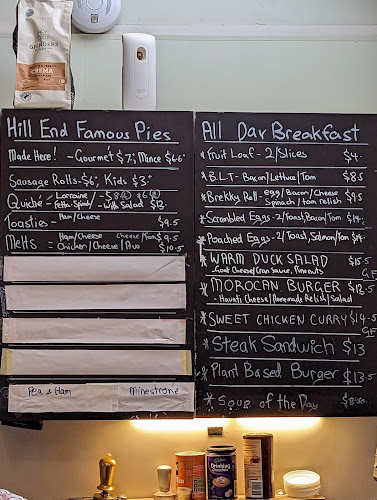 GRINDERS
COFFEE
CREMA
Hill End Famous Pies
Made Here! - Gourmet $7.; Mince $6.
Sausage Rolls - $6, Kids $3.
Quiche - Lorraine /
Fetta-Spinach / - With Salad $13.
Toasties - Ham/Cheese $9.5
Melts = Ham/Cheese Cheese/Tom $9.5
Chicken/Cheese/Avo $10.5
Pea & Ham Minestrone
All Day Breakfast
* Fruit Loaf - 2/Slices $4.
* B.L.T - Bacon/Lettuce/Tom $8.5
* Brekky Roll - egg/Bacon/Cheese $9.5
Spinach/tom relish
* Scrambled Eggs - 2/Toast, Bacon/Tom $14.
* Poached Eggs - 2/Toast, Salmon/Tom $14.
* WARM DUCK SALAD $15.5
- Goat Cheese/Cran Sauce, Pinenuts G.F
* MOROCAN BURGER $12.5
- Havati Cheese/Homemade Relish/Salad
* SWEET CHICKEN CURRY $14.5
G.F
* Steak Sandwich $13
* Plant Based Burger $13.5
* Soup of the Day $8.50
Cadbury
DRINKING
Chocolate